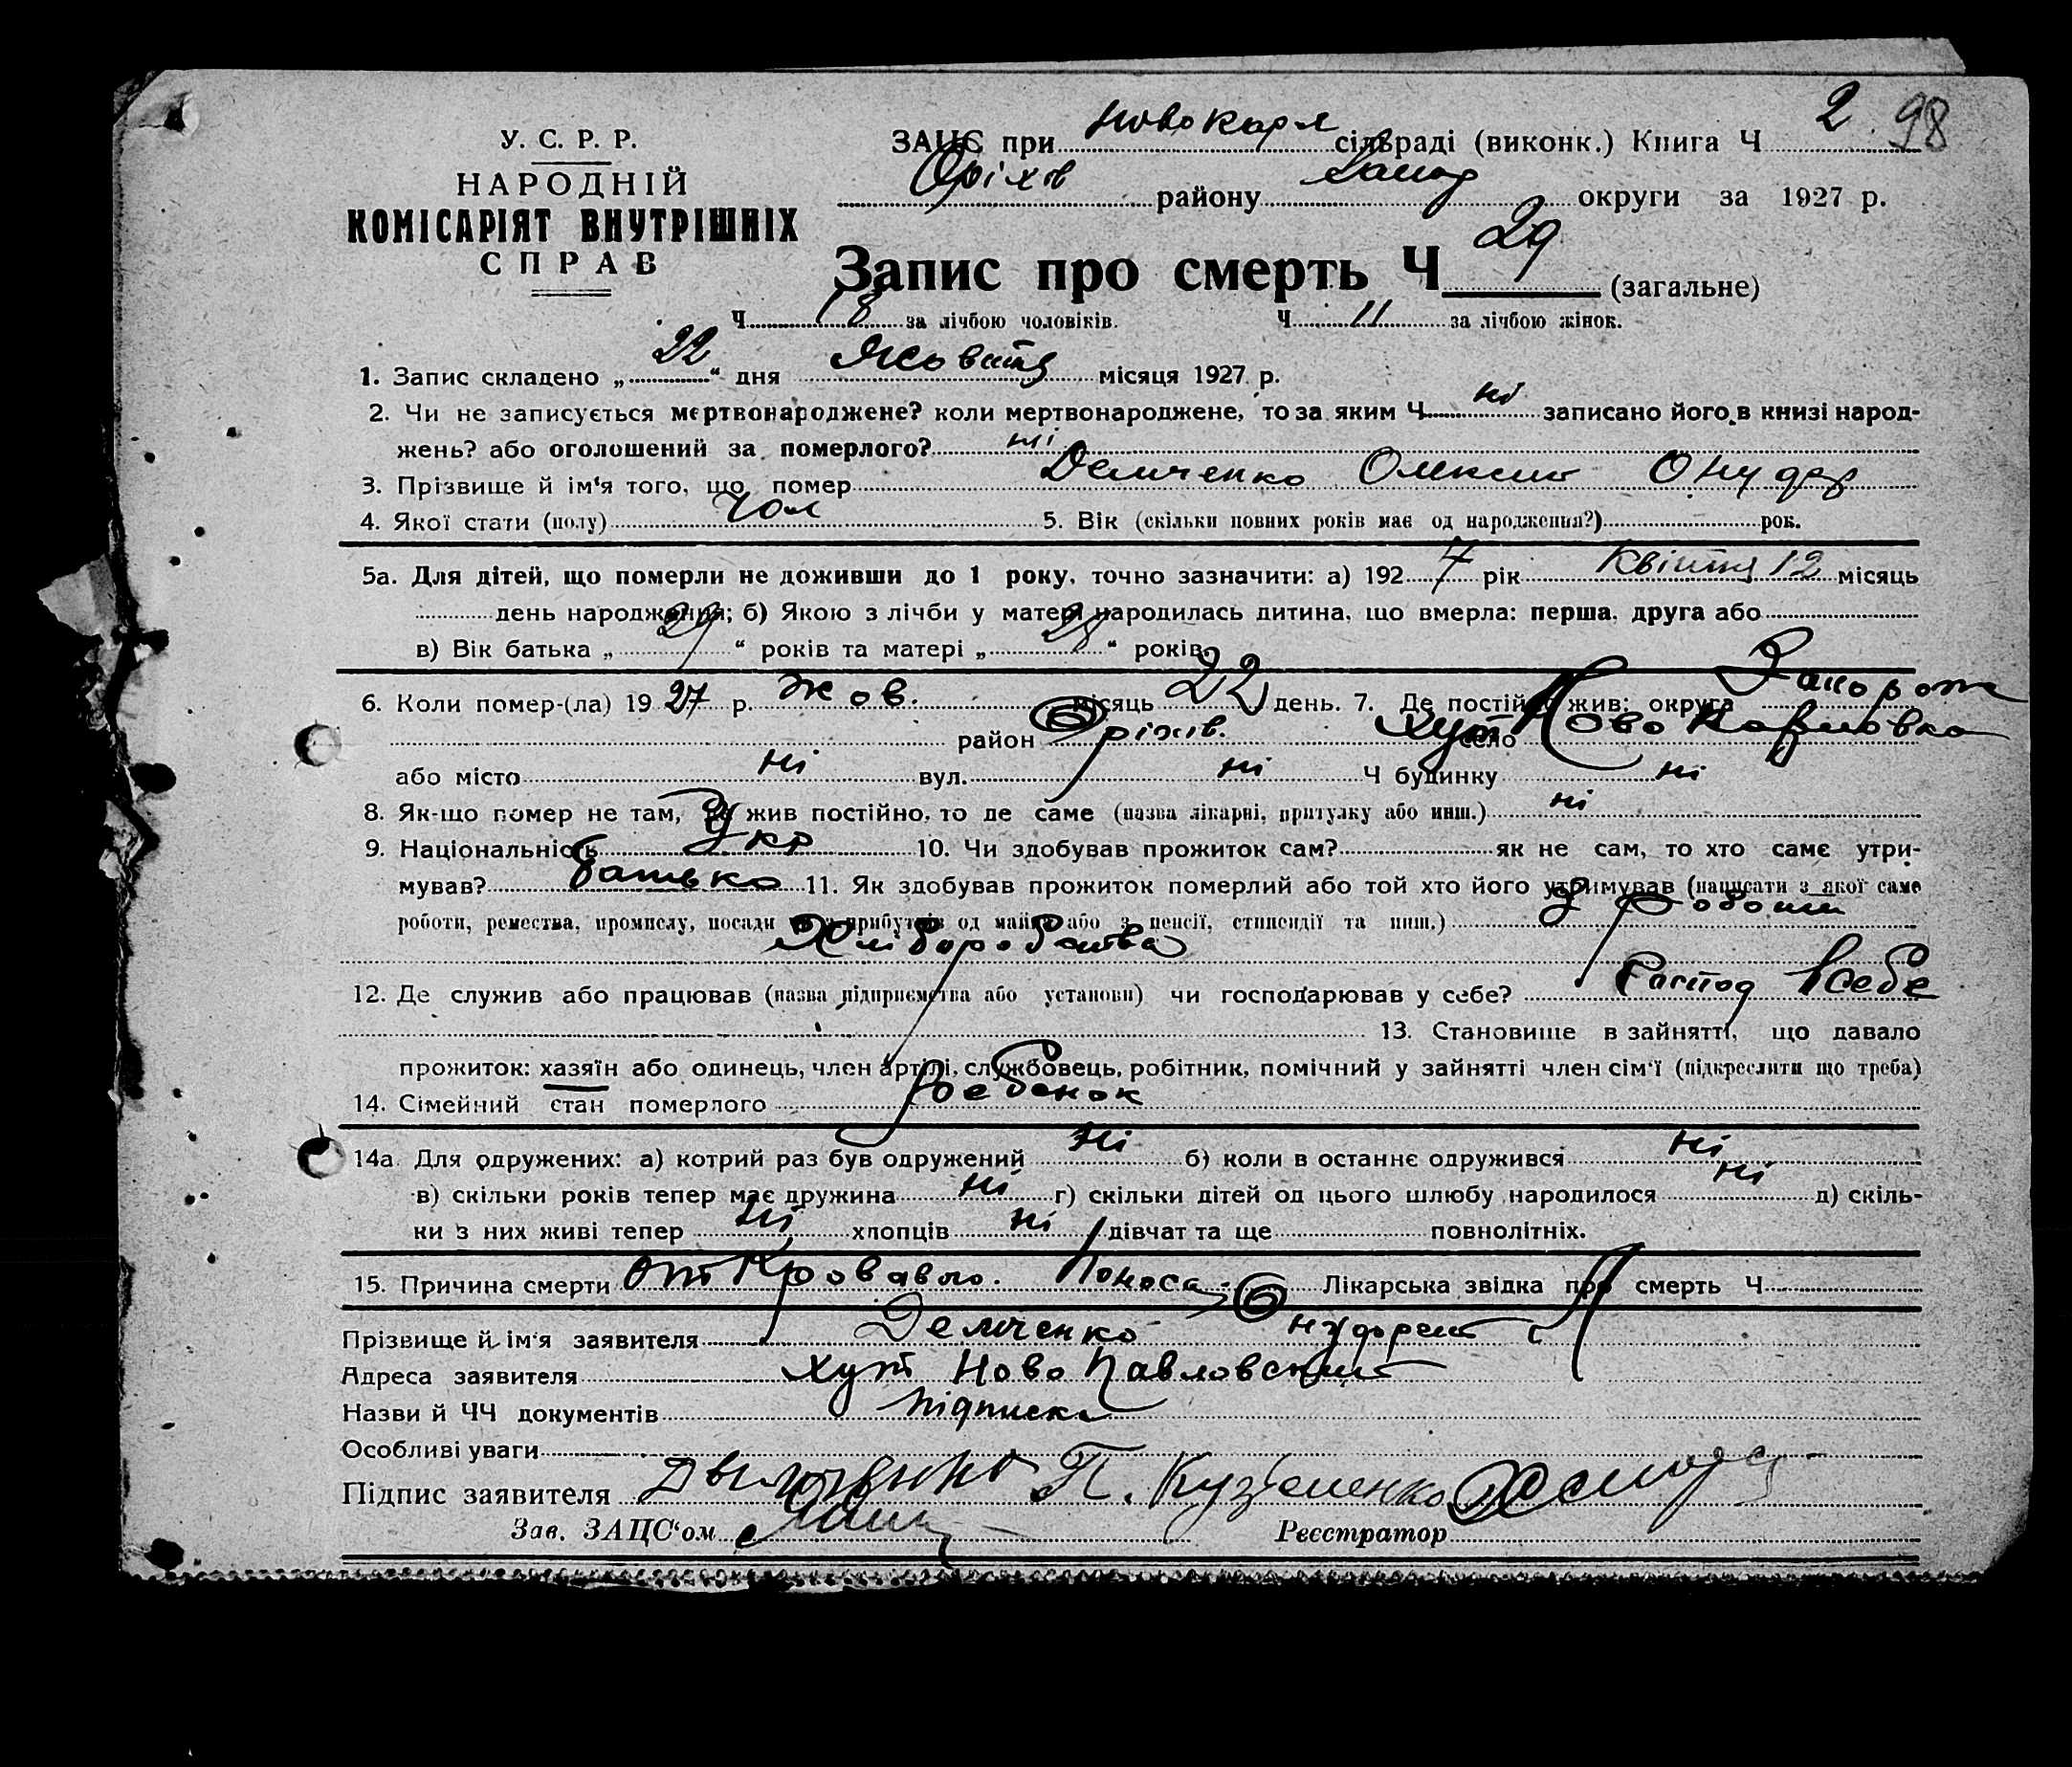 У. С. Р. Р.
НАРОДНІЙ
КОМІСАРІЯТ ВНУТРІШНІХ
СПРАВ
ЗАЦС при Новокарл сільраді (виконк.) Книга Ч 2 98
Оріхів району Запор округи за 1927 р.
Запис про смерть Ч 29 (загальне)
Ч 18 за лічбою чоловіків. Ч 11 за лічбою жінок.
1. Запис складено „ 22 “ дня Жовтня місяця 1927 р.
2. Чи не записується мертвонароджене? коли мертвонароджене, то за яким Ч ні записано його в книзі народ-
жень? або оголошений за померлого? ні
3. Прізвище й ім‘я того, що помер Демченко Олексий
4. Якої стати (полу) Чол 5. Вік (скільки повних років має од народження?) рок.
5а. Для дітей, що померли не доживши до 1 року, точно зазначити: а) 192 7 рік Квітня 12 місяць
день народження; б) Якою з лічби у матері народилась дитина, що вмерла: перша, друга або
в) Вік батька „ 29 “ років та матері „ 28 “ років
6. Коли помер-(ла) 19 27 р. жов. місяць 22 день. 7. Де постійно жив: округа Запорож
район Оріхів. село хут Ново Карловка
або місто ні вул. ні Ч будинку ні
8. Як-що помер не там, де жив постійно, то де саме (назва лікарні, притулку або инш.) ні
9. Національність Укр 10. Чи здобував прожиток сам? як не сам, то хто саме утри-
мував? батько 11. Як здобував прожиток померлий або той хто його утримував (написати з якої саме
роботи, ремества, промислу, посади чи з прибутків од майна або з пенсії, стипендії та инш.) З роботи
Хліборобства
12. Де служив або працював (назва підприємства або установи) чи господарював у себе? Господ всебе
13. Становище в зайнятті, що давало
прожиток: хазяїн або одинець, член артілі, службовець, робітник, помічний у зайнятті член сім‘ї (підкреслити що треба)
14. Сімейний стан померлого Ребенок
14а. Для одружених: а) котрий раз був одружений ні б) коли в останнє одружився ні
в) скільки років тепер має дружина ні г) скільки дітей од цього шлюбу народилося ні д) скіль-
ки з них живі тепер ні хлопців ні дівчат та ще повнолітніх.
15. Причина смерти От Кроваво. Поноса. Лікарська звідка про смерть Ч
Прізвище й ім‘я заявителя Демченко
Адреса заявителя хут Ново Павловский
Назви й ЧЧ документів підписка
Особливі уваги
Підпис заявителя П. Кузьменко
Зав. ЗАЦС‘ом Реєстратор